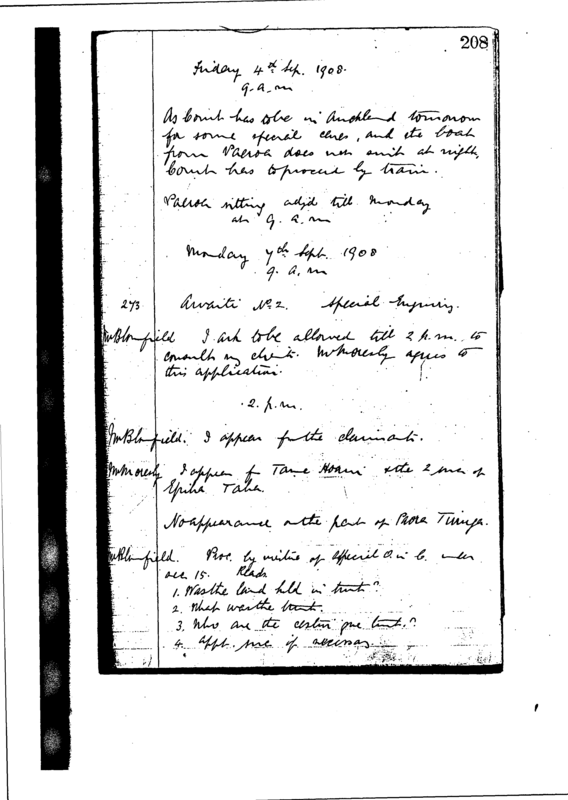 208
Friday 4th Sep. 1908.
9. a.m
As Court has to be in Auckland tomorrow
for some special cases, and the boat
from Paeroa does not suit at night,
Court has to proceed by train.
Paeroa sitting adjd till Monday
at 9. a.m
Monday 7th Sept. 1908
9. a.m
273 Awaiti No 2. Special Enquiry.
Mr Blomfield I ask to be allowed till 2 p.m. to
consult my clients. Mr Moresby agrees to
this application.
2. p.m.
Mr Blomfield. I appear for the claimants.
Mr Moresby I appear for Tame Hoani & the 2 of
Taha.
No appearance on the part of Paora Tinipa.
Mr Blomfield. Proc. by virtue of special O in C. under
sec. 15. Reads
1. Was the land held in trust?
2. What was the trust.
3. Who are the cestui que trust.?
4. appt. if necessary